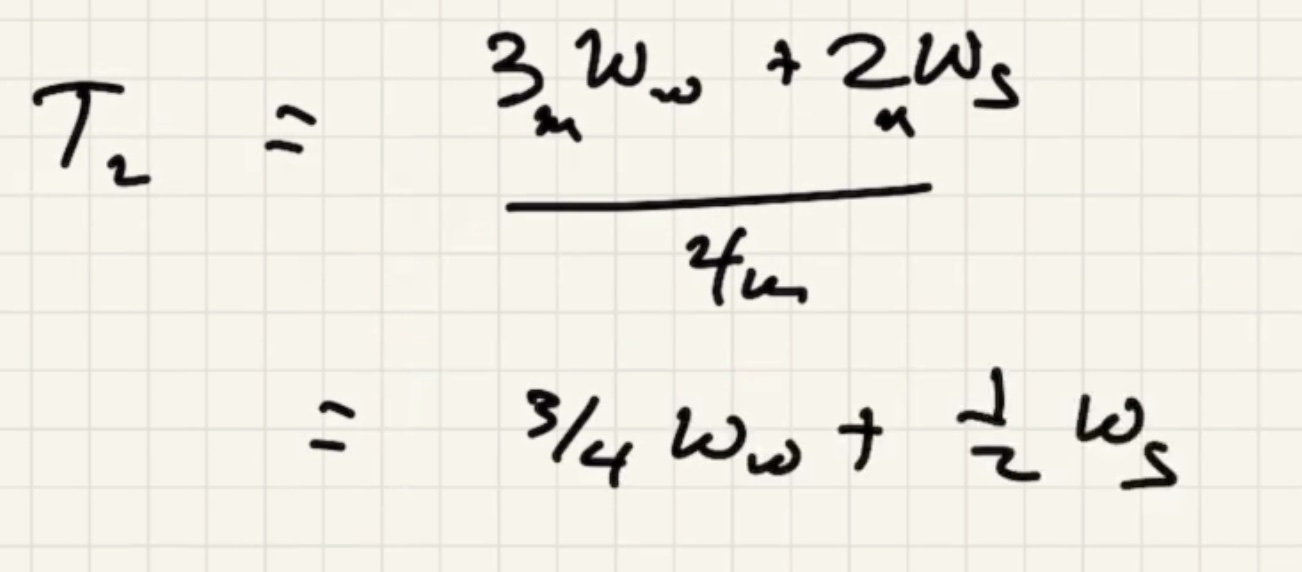 T₂ = 3m W_w + 2m W_s
4m
= 3/4 W_w + 1/2 W_s